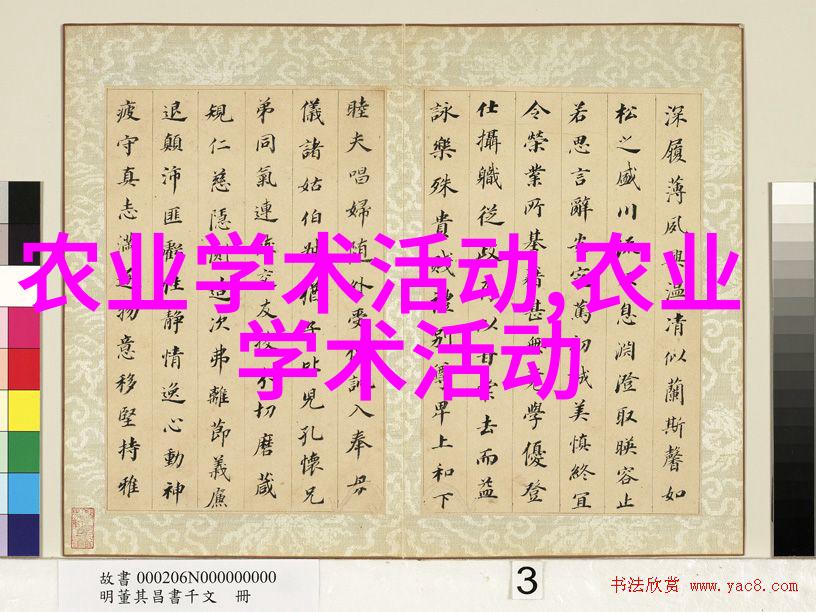 農业学术活动,农业
学术活动
深履薄夙興溫凊似蘭斯馨如
松之盛川流不息淵澄取暎容止
若思言辭安定篤初誠美慎終宜
令榮業所基籍甚無竟學優登
仕攝職從政存以甘棠去而益
詠樂殊貴賤禮別尊卑上和下
睦夫唱婦隨外受傅訓入奉母
儀諸姑伯叔猶子比兒孔懷兄
弟同氣連枝交友投分切磨箴
規仁慈隱惻造次弗離節義廉
退顛沛匪虧性靜情逸心動神
疲守真志滿逐物意移堅持雅
故書 000206N000000000
明董其昌書千文 冊
3
书法欣赏 www.yac8.com